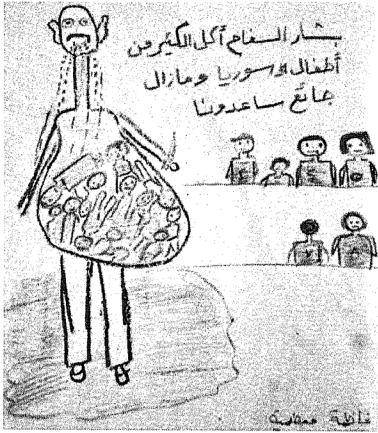 بشار السفاح أكل الكثير من
أطفال سوريا ومازال
جائع ساعدونا
فاطمة